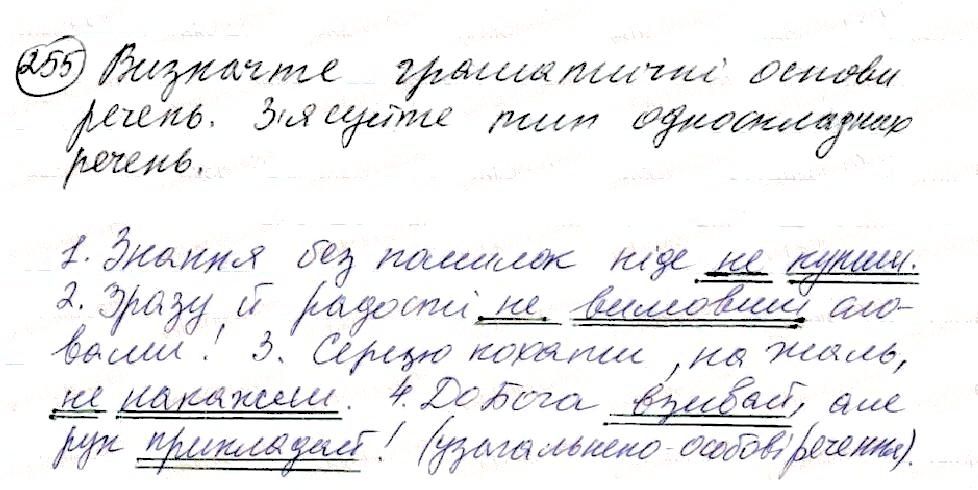 255 Визначте граматичні основи
речень. З'ясуйте тип односкладних
речень.
1. Знання без помилок ніде не купиш.
2. Зразу й радості не вимовиш сло-
вами! 3. Серцю кохати, на жаль,
не накажеш. 4. До Бога взивай, але
рук прикладай! (узагальнено-особові речення).